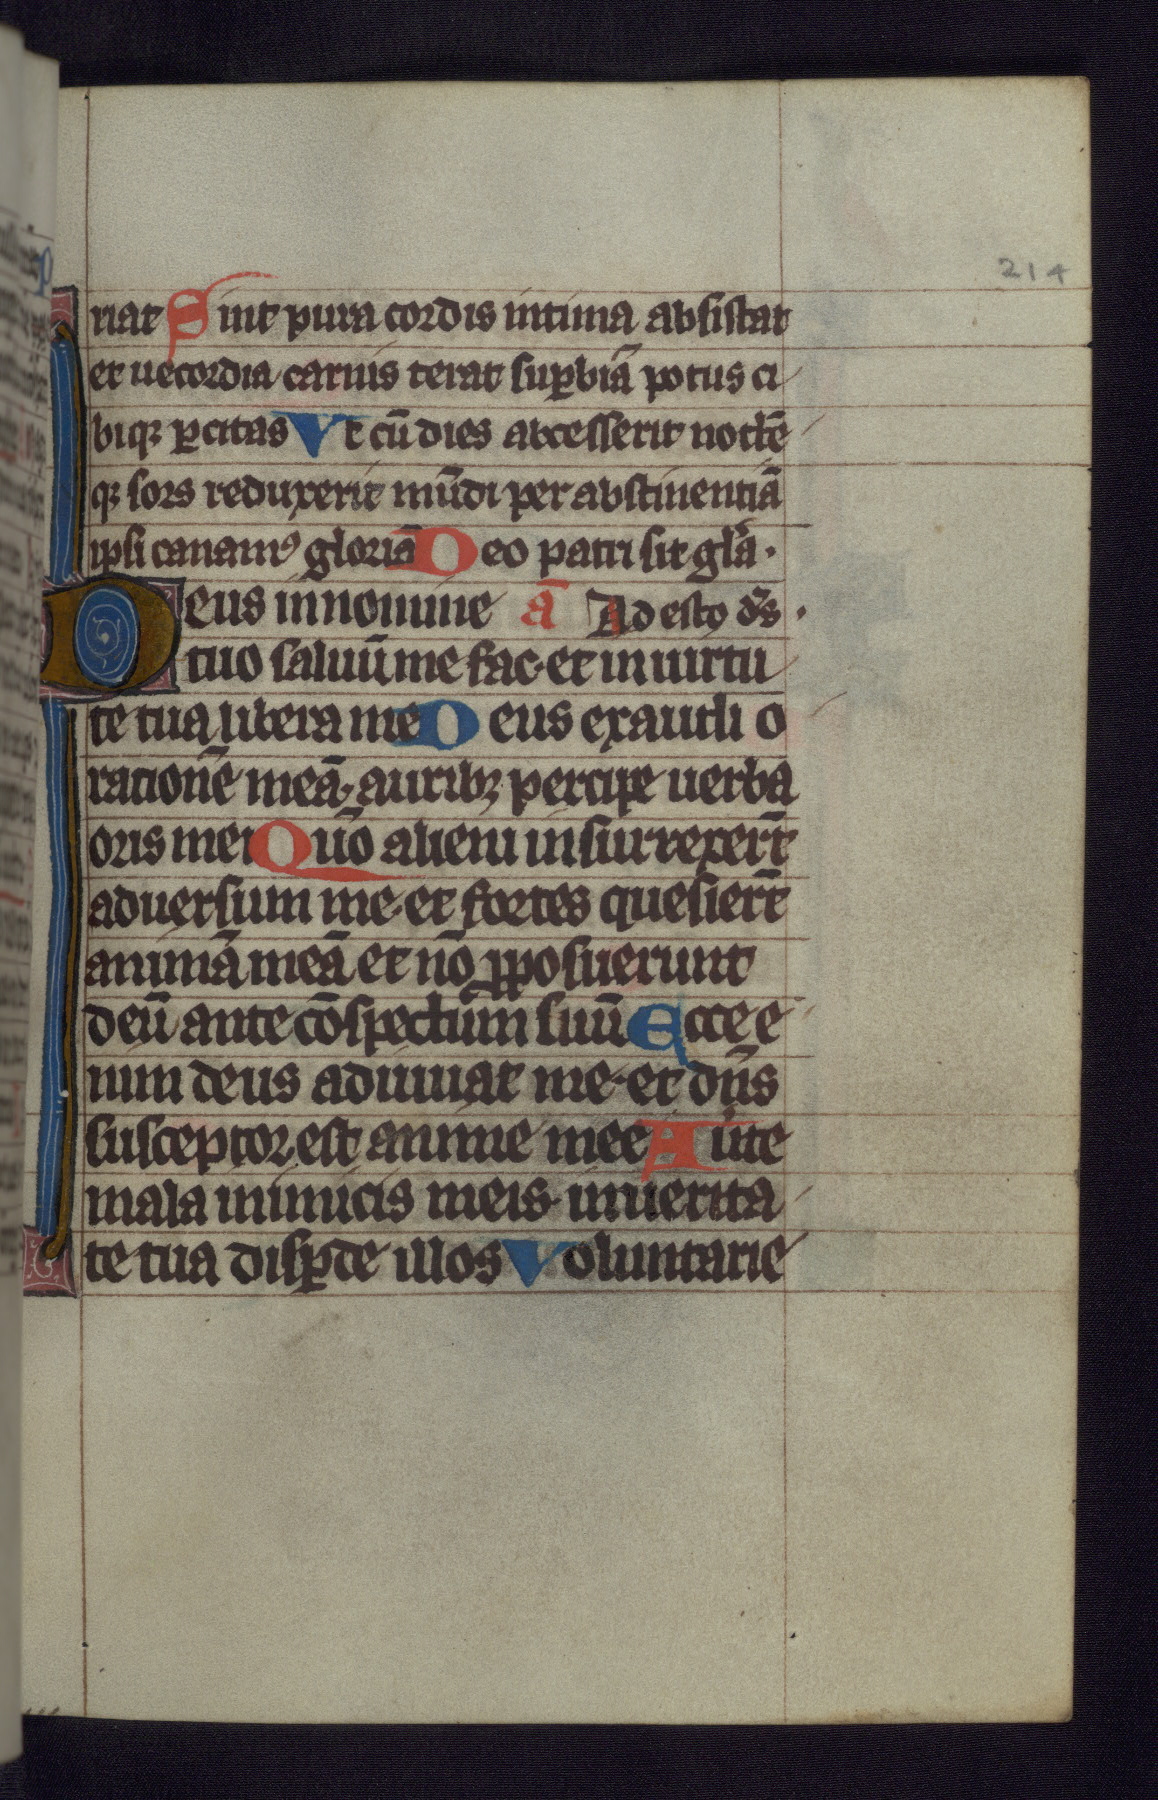 214
riat Sint pura cordis intima absistat
et uecordia carnis terat sup̱biā potus ci
biqꝫ ꝑcitas Vt cū dies abcesserit noctē
qꝫ sors reduxerit mūdi per abstinentiā
ipsi canamꝰ gloriā Deo patri sit gl̄a.
Deus in nomine a͞ Adesto ds̄.
tuo saluū me fac. et in uirtu
te tua libera me Deus exaudi o
rationē meā. auribꝫ percipe uerba
oris mei Qūo alieni insurrexer̄t
aduersum me. et fortes quesier̄t
animā meā et nō ꝓposuerunt
deū ante cōspectum suū Ecce e
nim deus adiuuat me. et dn̄s
susceptor est anime mee Aute
mala inimicis meis. in uerita
te tua disꝑde illos Voluntarie